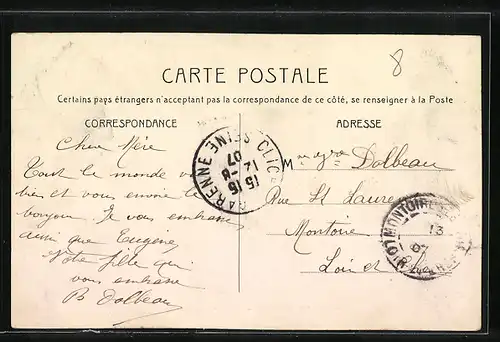 8
CARTE POSTALE
Certains pays étrangers n'acceptant pas la correspondance de ce côté, se renseigner à la Poste
CORRESPONDANCE
ADRESSE
Cher Mère
Tout le monde va
bien et vous envoie le
bonjour. Je vous embrasse
ainsi que Eugène
Votre fille qui
vous embrasse
B Dolbeau
M Dolbeau
Rue St Laurent
Montoire
Loir et Cher
VARENNE SEINE
15 15
12 -8
07
MONTOIRE
13
LOIR